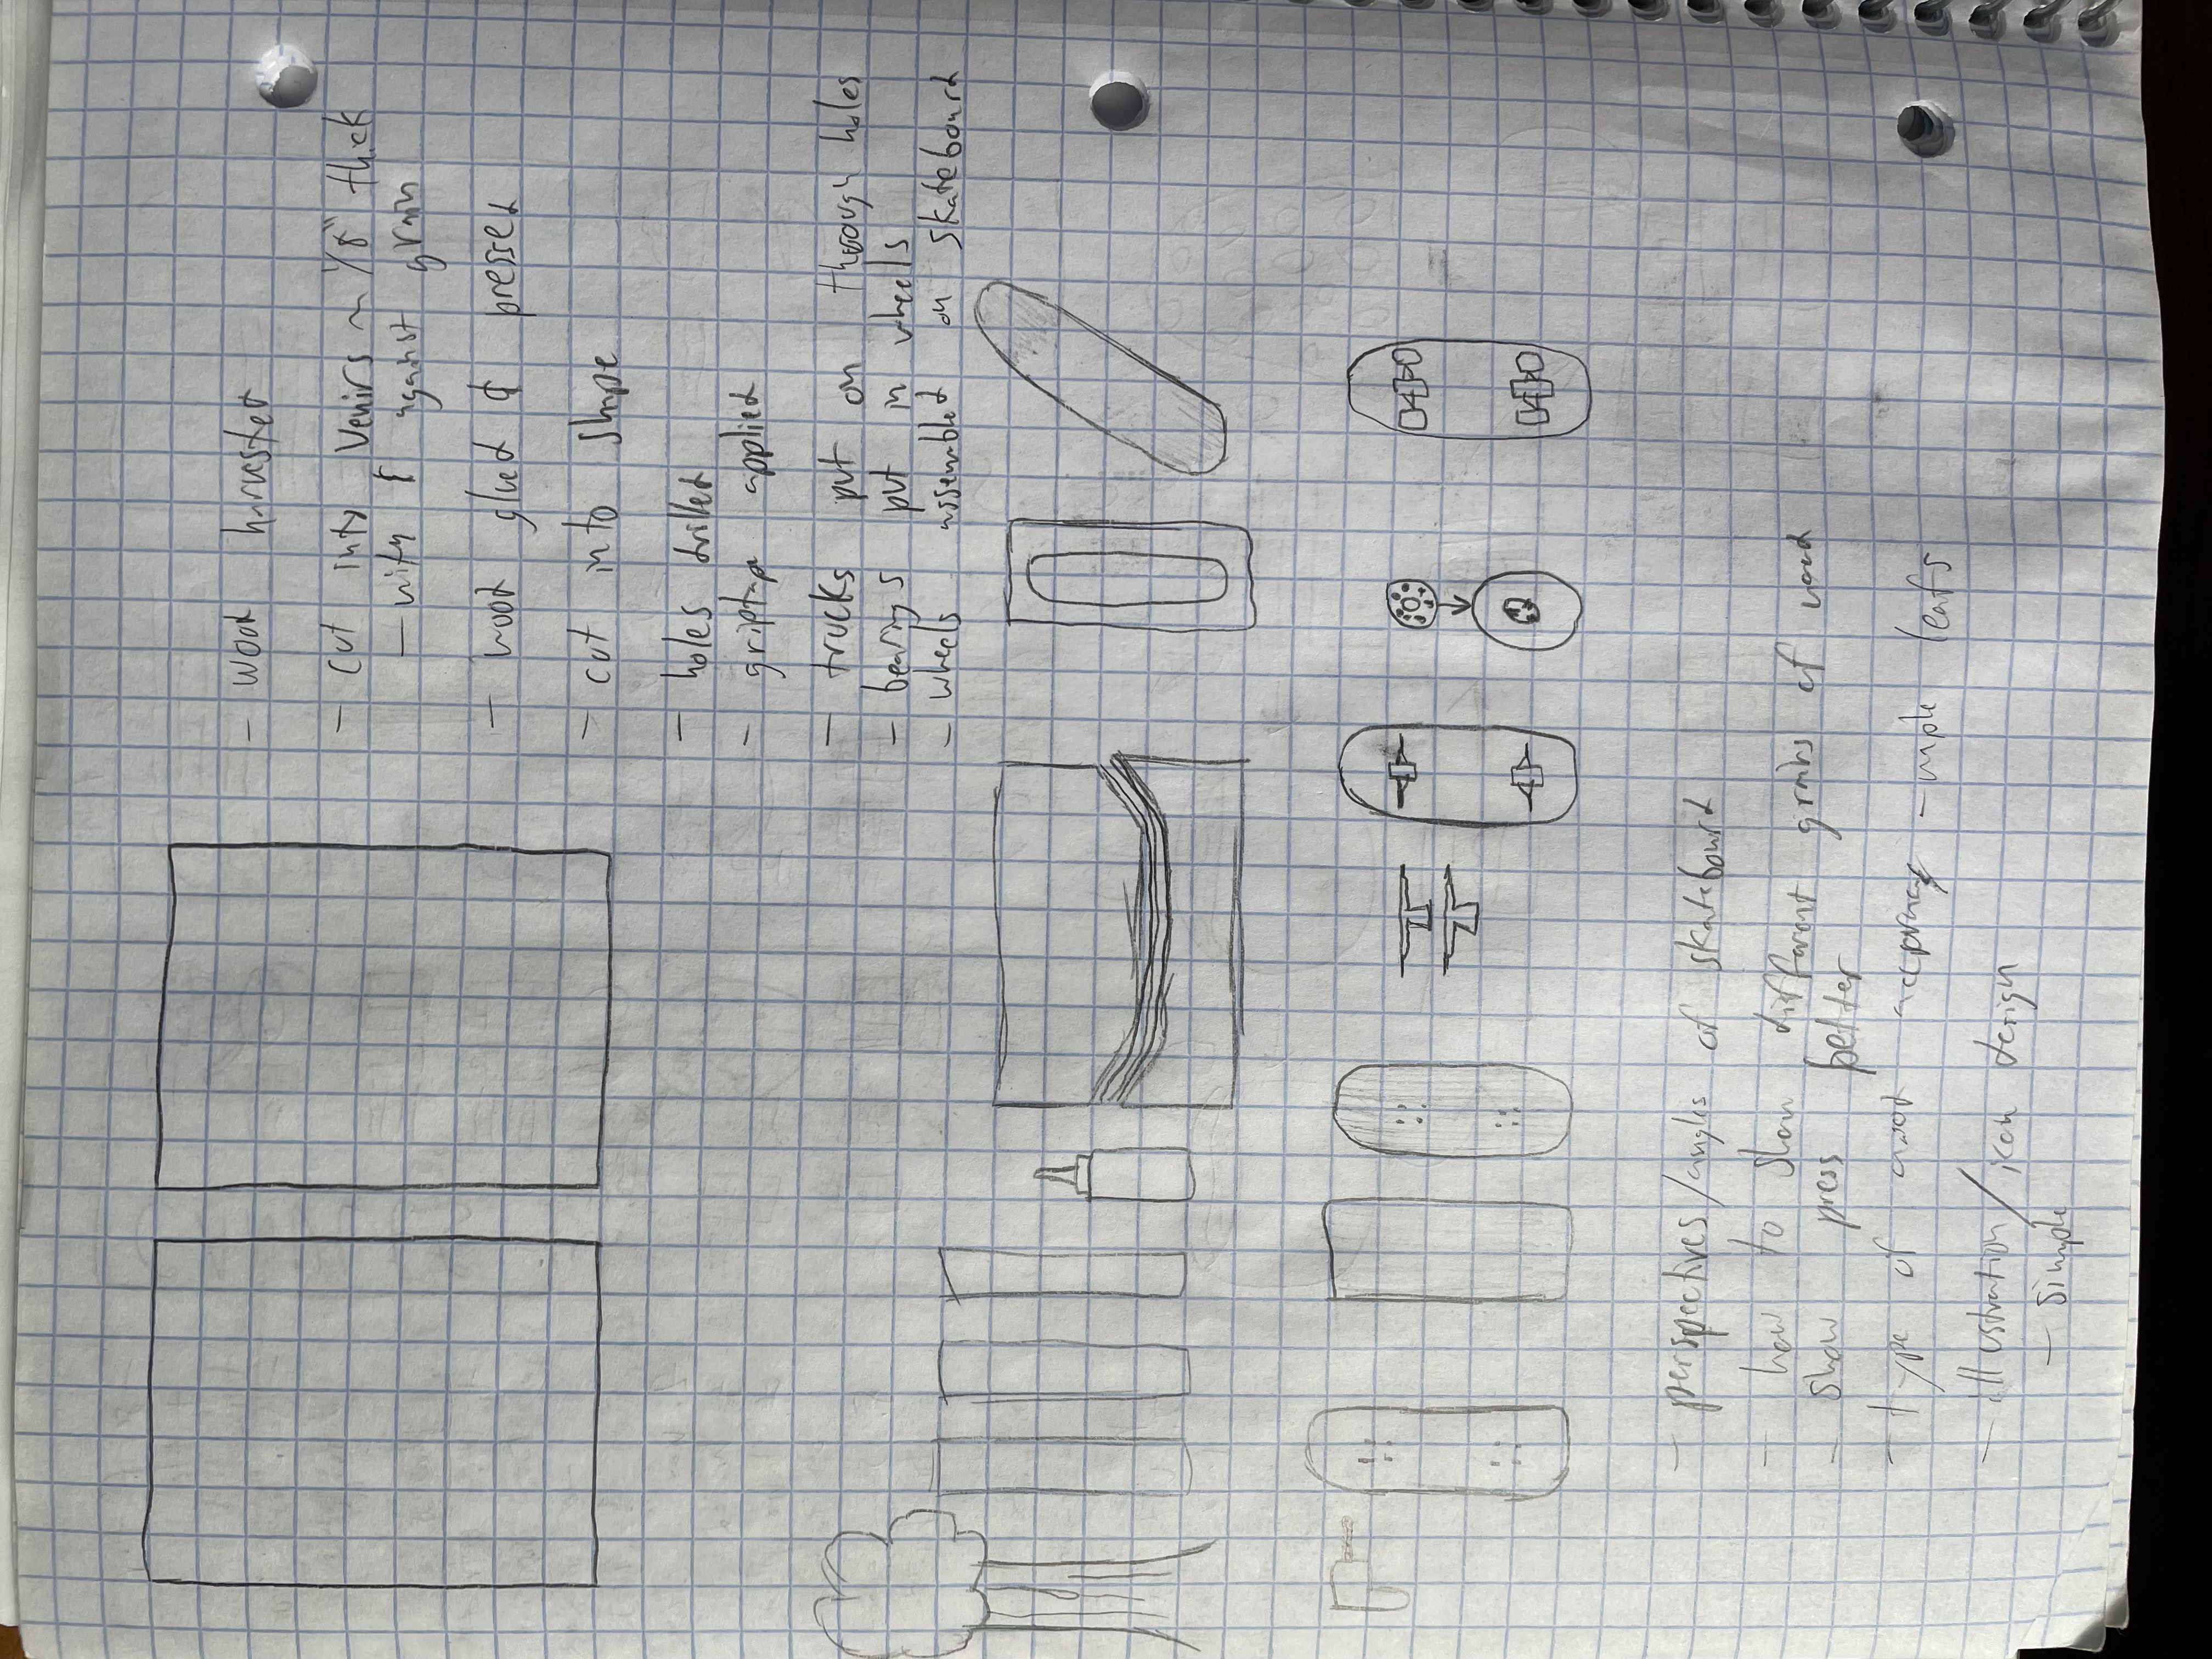 - wood harvested
- cut into Venirs ~ 1/8" thick
- with & against grain
- wood glued & pressed
- cut into shape
- holes drilled
- griptape applied
- trucks put on through holes
- bearings put in wheels
- wheels assembled on skateboard
- perspectives/angles of skateboard
- how to show different grains of wood
- show press better
- type of wood accuracy - maple leafs
- illustration/icon design
- simple